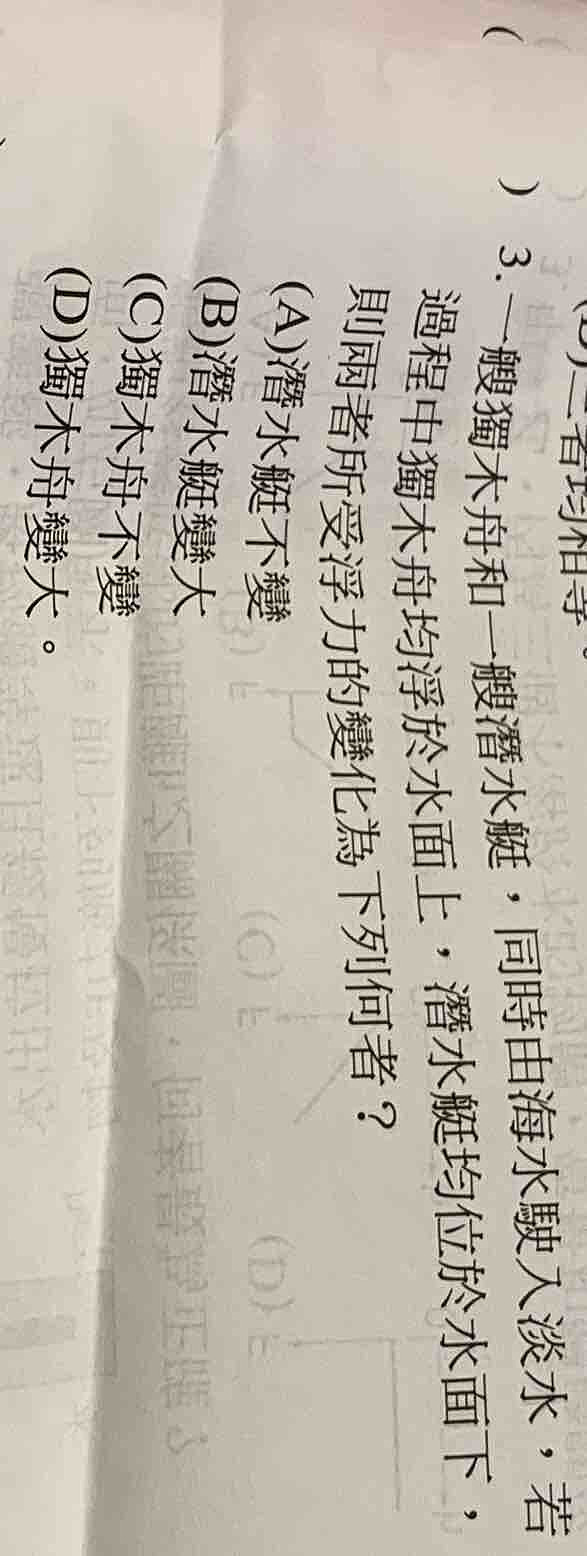 二者均相等。
( ) 3. 一艘獨木舟和一艘潛水艇，同時由海水駛入淡水，若
過程中獨木舟均浮於水面上，潛水艇均位於水面下，
則兩者所受浮力的變化為下列何者？
(A)潛水艇不變
(B)潛水艇變大
(C)獨木舟不變
(D)獨木舟變大。